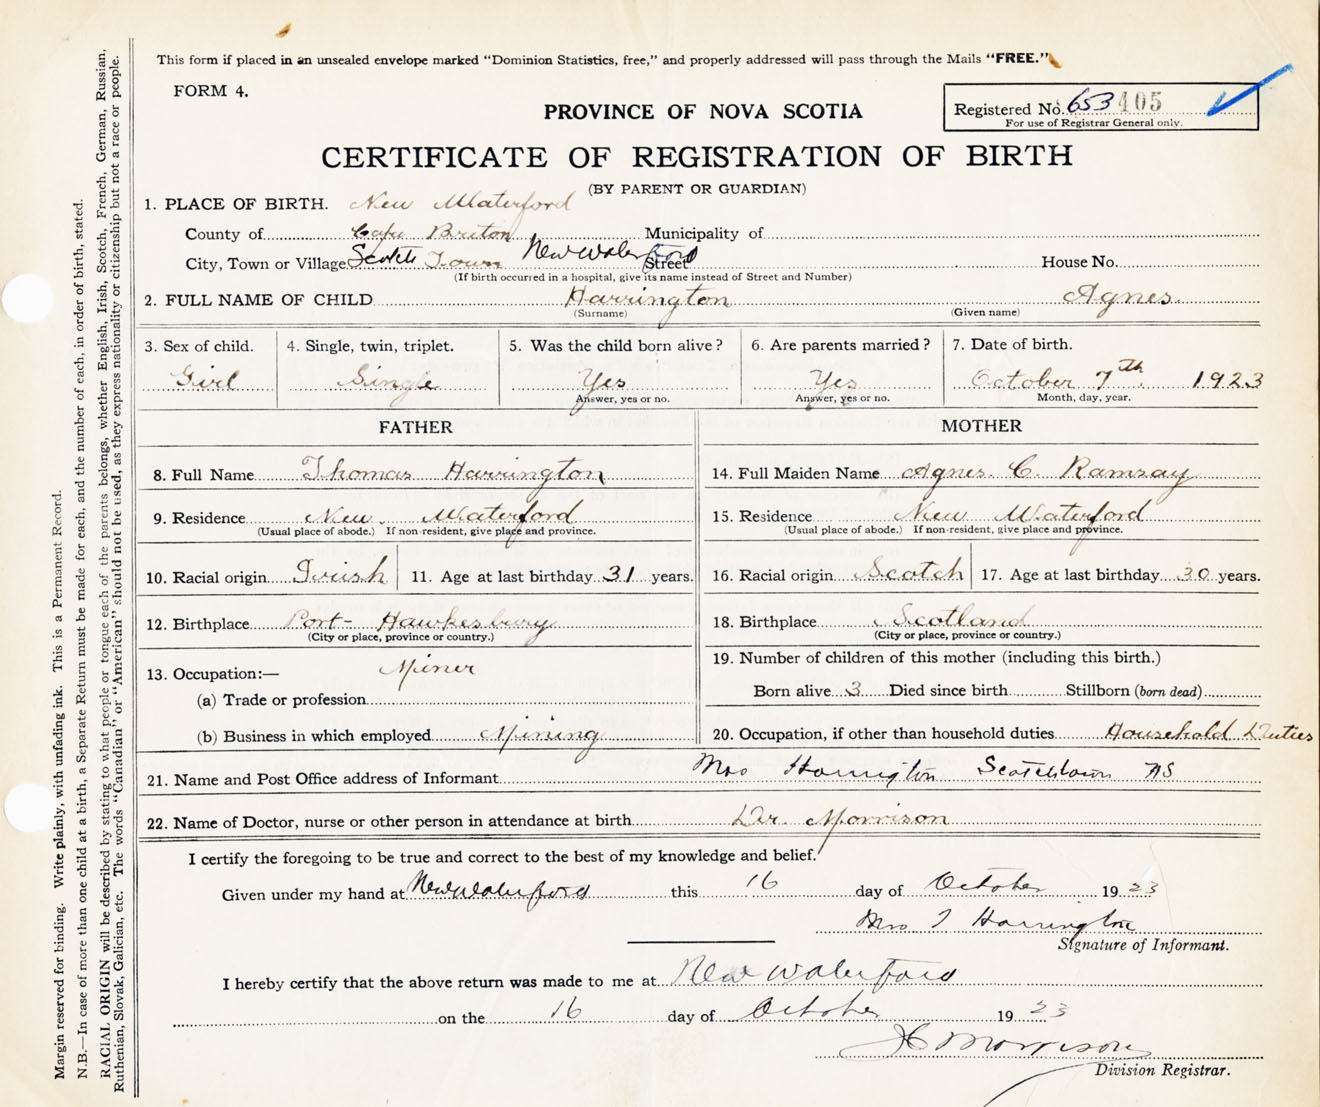 This form if placed in an unsealed envelope marked "Dominion Statistics, free," and properly addressed will pass through the Mails "FREE."
FORM 4.
Registered No. 653405
For use of Registrar General only.
PROVINCE OF NOVA SCOTIA
CERTIFICATE OF REGISTRATION OF BIRTH
(BY PARENT OR GUARDIAN)
1. PLACE OF BIRTH. New Waterford
County of Cape Briton Municipality of
City, Town or Village Scotch Town New Waterford Street House No.
(If birth occurred in a hospital, give its name instead of Street and Number)
2. FULL NAME OF CHILD Harrington Agnes.
(Surname) (Given name)
3. Sex of child. 4. Single, twin, triplet. 5. Was the child born alive? 6. Are parents married? 7. Date of birth.
Girl Single Yes Yes October 7th 1923
Answer, yes or no. Answer, yes or no. Month, day, year.
FATHER MOTHER
8. Full Name Thomas Harrington 14. Full Maiden Name Agnes. C. Ramsay
9. Residence New Waterford 15. Residence New Waterford
(Usual place of abode.) If non-resident, give place and province. (Usual place of abode.) If non-resident, give place and province.
10. Racial origin Irish 11. Age at last birthday 31 years. 16. Racial origin Scotch 17. Age at last birthday 30 years.
12. Birthplace Port-Hawkesbury 18. Birthplace Scotland
(City or place, province or country.) (City or place, province or country.)
13. Occupation:— Miner 19. Number of children of this mother (including this birth.)
(a) Trade or profession Born alive 3 Died since birth Stillborn (born dead)
(b) Business in which employed Mining 20. Occupation, if other than household duties Household Duties
21. Name and Post Office address of Informant Mrs Harrington Scotchtown NS
22. Name of Doctor, nurse or other person in attendance at birth Dr. Morrison
I certify the foregoing to be true and correct to the best of my knowledge and belief.
Given under my hand at New Waterford this 16 day of October 1923
Mrs T Harrington
Signature of Informant.
I hereby certify that the above return was made to me at New Waterford
on the 16 day of October 1923
Morrison
Division Registrar.
Margin reserved for binding. Write plainly, with unfading ink. This is a Permanent Record.
N.B.—In case of more than one child at a birth, a Separate Return must be made for each, and the number of each, in order of birth, stated.
RACIAL ORIGIN will be described by stating to what people or tongue each of the parents belongs, whether English, Irish, Scotch, French, German, Russian,
Ruthenian, Slovak, Galician, etc. The words "Canadian" or "American" should not be used, as they express nationality or citizenship but not a race or people.